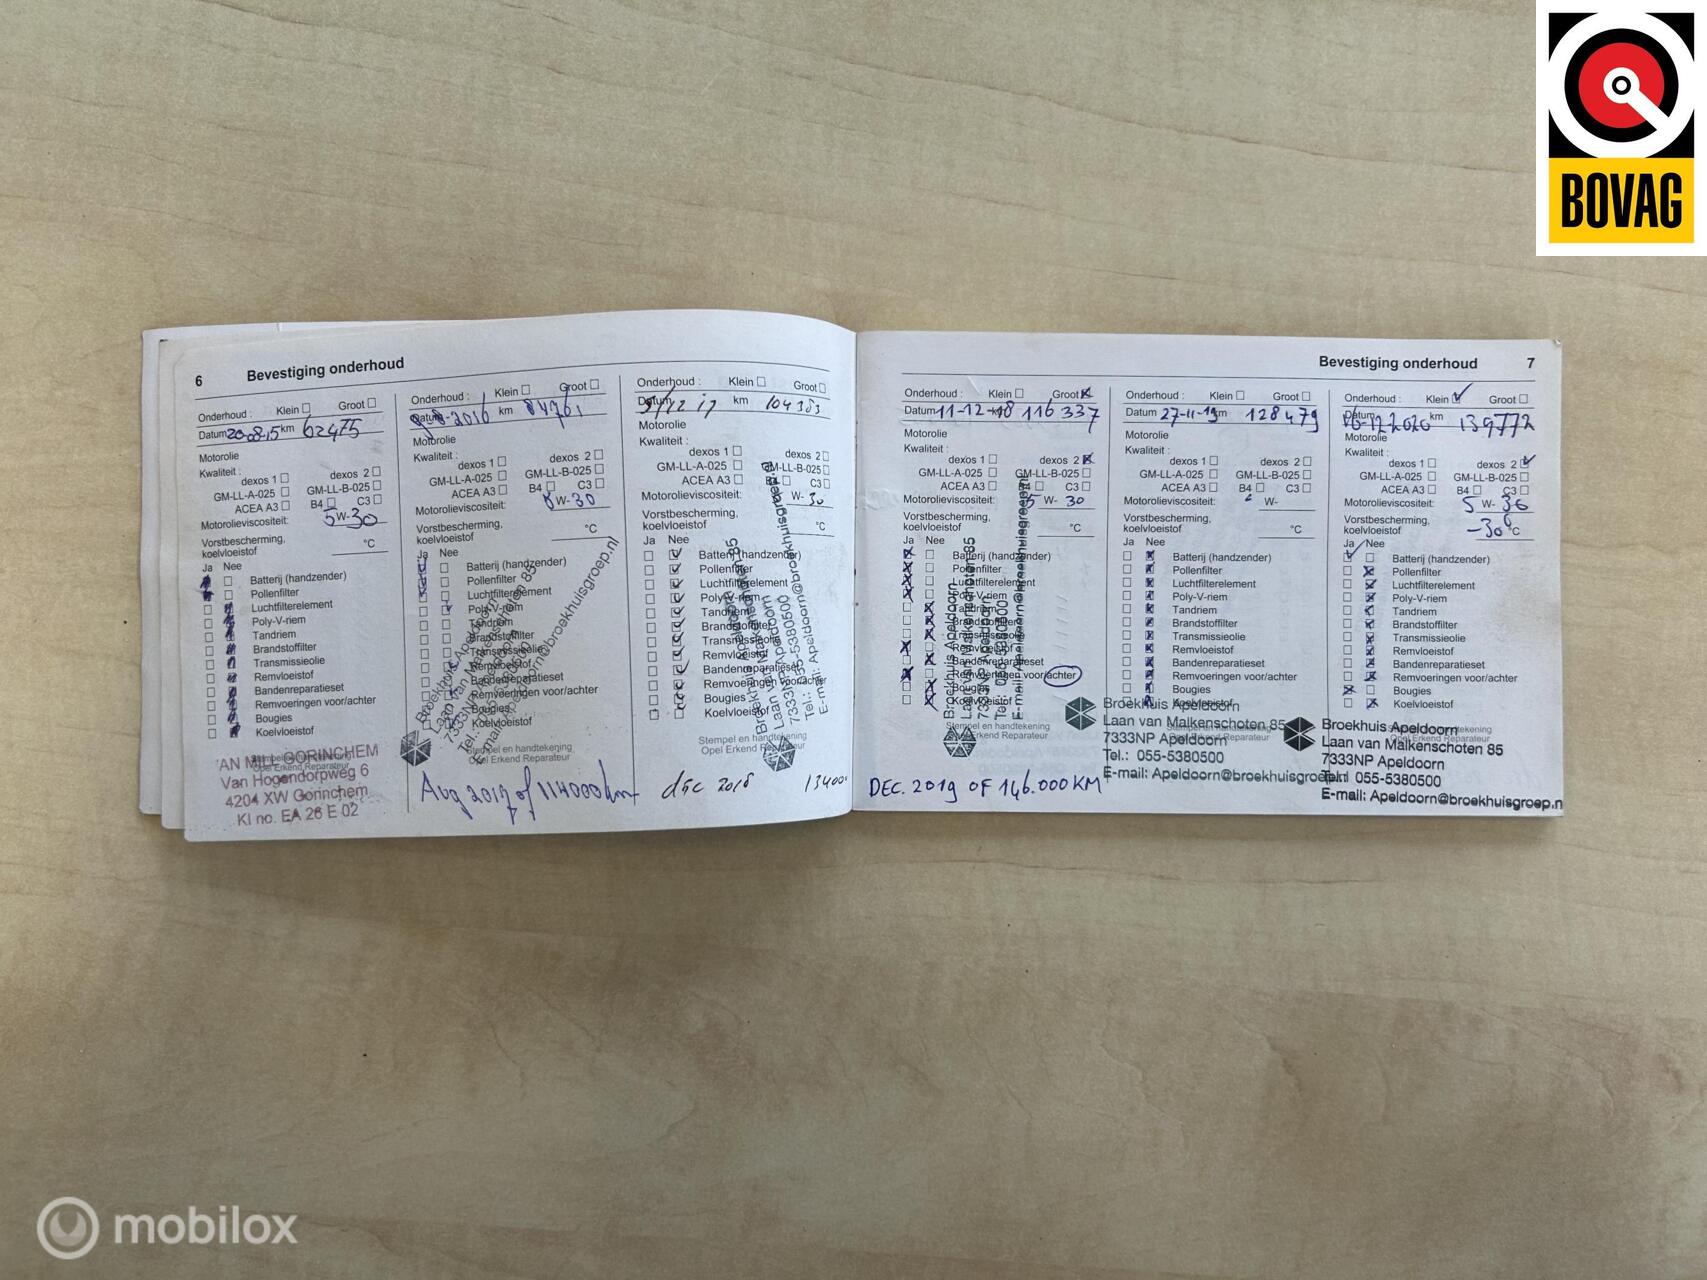 BOVAG
6 Bevestiging onderhoud
Onderhoud : Klein Groot
Datum 20-08-15 km 62475
Motorolie
Kwaliteit :
dexos 1 dexos 2
GM-LL-A-025 GM-LL-B-025
ACEA A3 B4 C3
Motorolieviscositeit: 5 W- 30
Vorstbescherming,
koelvloeistof °C
Ja Nee
Batterij (handzender)
Pollenfilter
Luchtfilterelement
Poly-V-riem
Tandriem
Brandstoffilter
Transmissieolie
Remvloeistof
Bandenreparatieset
Remvoeringen voor/achter
Bougies
Koelvloeistof
Opel Erkend Reparateur
AN MILL GORINCHEM
Van Hogendorpweg 6
4204 XW Gorinchem
KI no. EA 26 E 02
Onderhoud : Klein Groot
Datum -2016 km 84761
Motorolie
Kwaliteit :
dexos 1 dexos 2
GM-LL-A-025 GM-LL-B-025
ACEA A3 B4 C3
Motorolieviscositeit: W-30
Vorstbescherming,
koelvloeistof °C
Ja Nee
Batterij (handzender)
Pollenfilter
Luchtfilterelement
Poly-V-riem
Tandriem
Brandstoffilter
Transmissieolie
Remvloeistof
Bandenreparatieset
Remvoeringen voor/achter
Bougies
Koelvloeistof
Stempel en handtekening
Opel Erkend Reparateur
Aug 2017 of 114000km
Onderhoud : Klein Groot
Datum 12 17 km 104383
Motorolie
Kwaliteit :
dexos 1 dexos 2
GM-LL-A-025 GM-LL-B-025
ACEA A3 B4 C3
Motorolieviscositeit: W- 30
Vorstbescherming,
koelvloeistof °C
Ja Nee
Batterij (handzender)
Pollenfilter
Luchtfilterelement
Poly-V-riem
Tandriem
Brandstoffilter
Transmissieolie
Remvloeistof
Bandenreparatieset
Remvoeringen voor/achter
Bougies
Koelvloeistof
Stempel en handtekening
Opel Erkend Reparateur
dec 2018
Bevestiging onderhoud 7
Onderhoud : Klein Groot
Datum 11-12-18 km 116 337
Motorolie
Kwaliteit :
dexos 1 dexos 2
GM-LL-A-025 GM-LL-B-025
ACEA A3 B4 C3
Motorolieviscositeit: 5 W- 30
Vorstbescherming,
koelvloeistof °C
Ja Nee
Batterij (handzender)
Pollenfilter
Luchtfilterelement
Poly-V-riem
Tandriem
Brandstoffilter
Transmissieolie
Remvloeistof
Bandenreparatieset
Remvoeringen voor/achter
Bougies
Koelvloeistof
Stempel en handtekening
Opel Erkend Reparateur
Broekhuis Apeldoorn
Laan van Malkenschoten 85
7333NP Apeldoorn
Tel.: 055-5380500
E-mail: Apeldoorn@broekhuisgroep.nl
DEC. 2019 OF 146.000 KM
Onderhoud : Klein Groot
Datum 27-11-19 km 128479
Motorolie
Kwaliteit :
dexos 1 dexos 2
GM-LL-A-025 GM-LL-B-025
ACEA A3 B4 C3
Motorolieviscositeit: W-
Vorstbescherming,
koelvloeistof °C
Ja Nee
Batterij (handzender)
Pollenfilter
Luchtfilterelement
Poly-V-riem
Tandriem
Brandstoffilter
Transmissieolie
Remvloeistof
Bandenreparatieset
Remvoeringen voor/achter
Bougies
Koelvloeistof
Broekhuis Apeldoorn
Laan van Malkenschoten 85
7333NP Apeldoorn
Tel.: 055-5380500
E-mail: Apeldoorn@broekhuisgroep.nl
Onderhoud : Klein Groot
Datum km 139772
Motorolie
Kwaliteit :
dexos 1 dexos 2
GM-LL-A-025 GM-LL-B-025
ACEA A3 B4 C3
Motorolieviscositeit: 5 W- 30
Vorstbescherming,
koelvloeistof -30 °C
Ja Nee
Batterij (handzender)
Pollenfilter
Luchtfilterelement
Poly-V-riem
Tandriem
Brandstoffilter
Transmissieolie
Remvloeistof
Bandenreparatieset
Remvoeringen voor/achter
Bougies
Koelvloeistof
Broekhuis Apeldoorn
Laan van Malkenschoten 85
7333NP Apeldoorn
055-5380500
E-mail: Apeldoorn@broekhuisgroep.n
mobilox